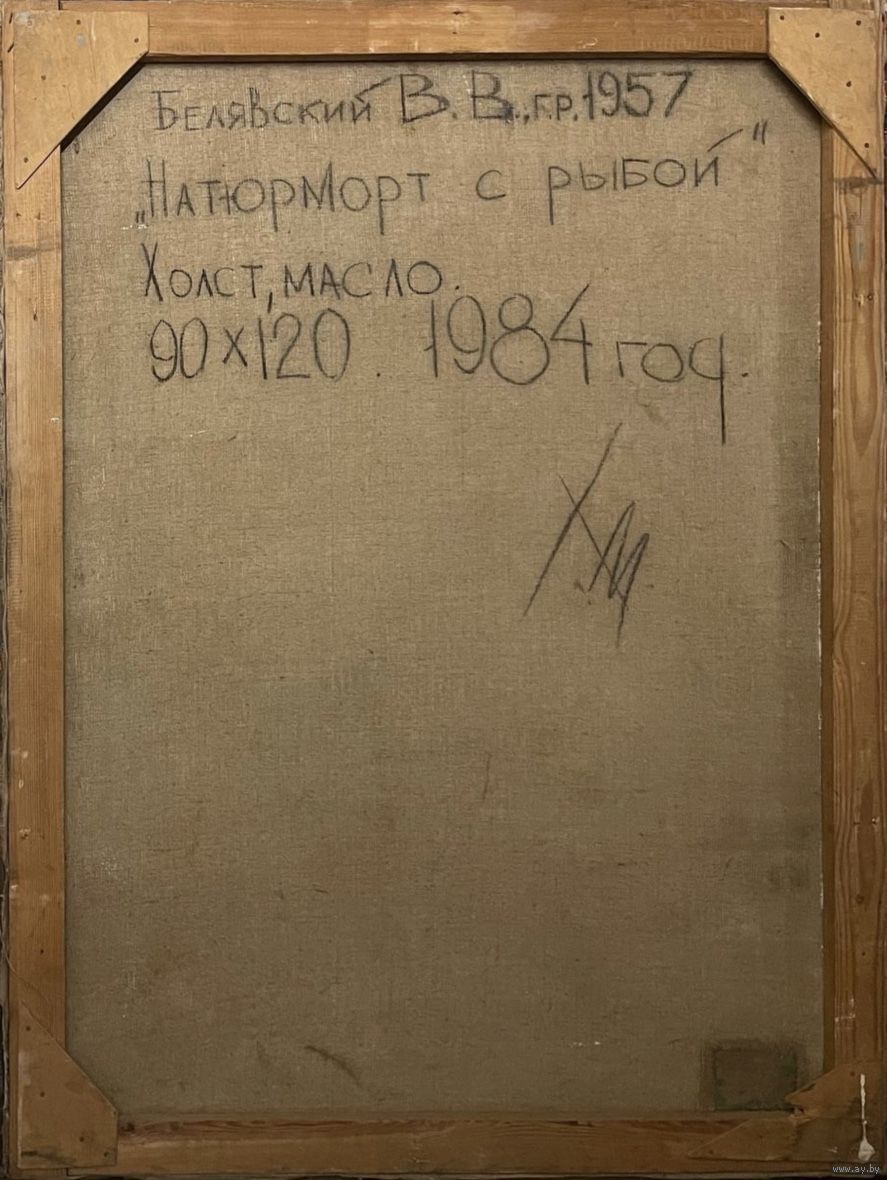 Белявский В. В., г.р. 1957
„Натюрморт с рыбой"
Холст, масло.
90х120. 1984 год.
www.ay.by